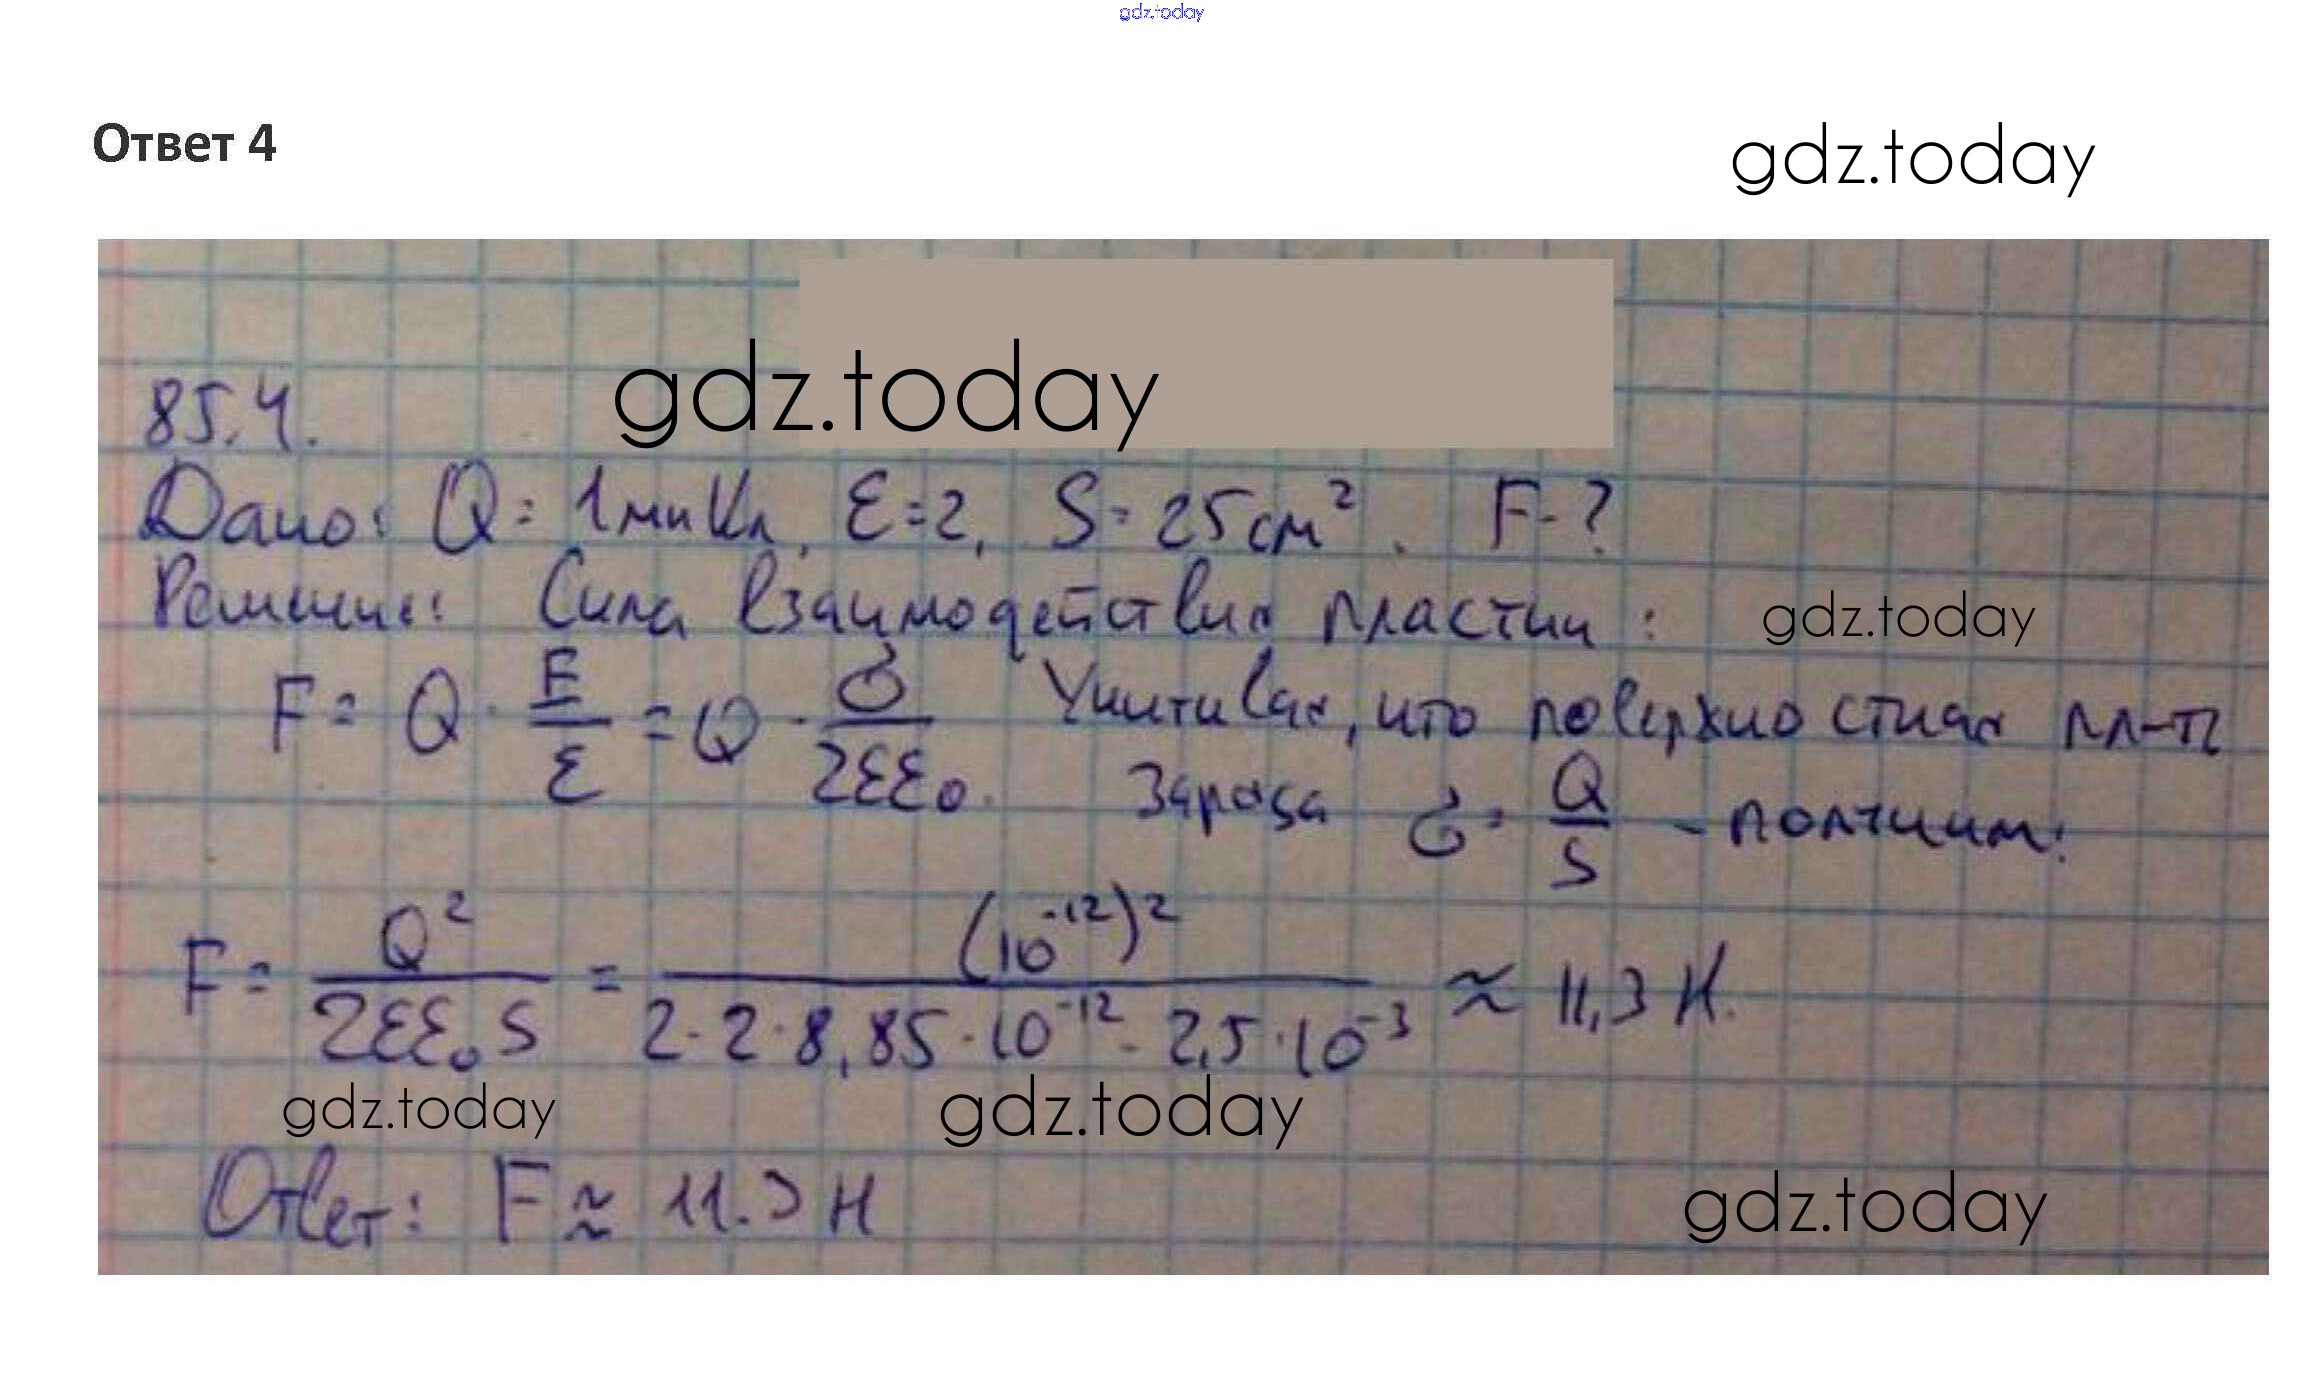 gdz.today
Ответ 4
gdz.today
gdz.today
85.4.
Дано: Q = 1мкКл, ε=2, S=25см². F-?
Решение: Сила взаимодействия пластин:
gdz.today
F = Q · E/ε = Q · σ/2εε₀. Учитывая, что поверхностная пл-ть
заряда σ = Q/S - получим:
F = Q²/2εε₀S = (10⁻¹²)²/2·2·8,85·10⁻¹²·2,5·10⁻³ ≈ 11,3 Н.
gdz.today
gdz.today
Ответ: F ≈ 11.3 Н
gdz.today